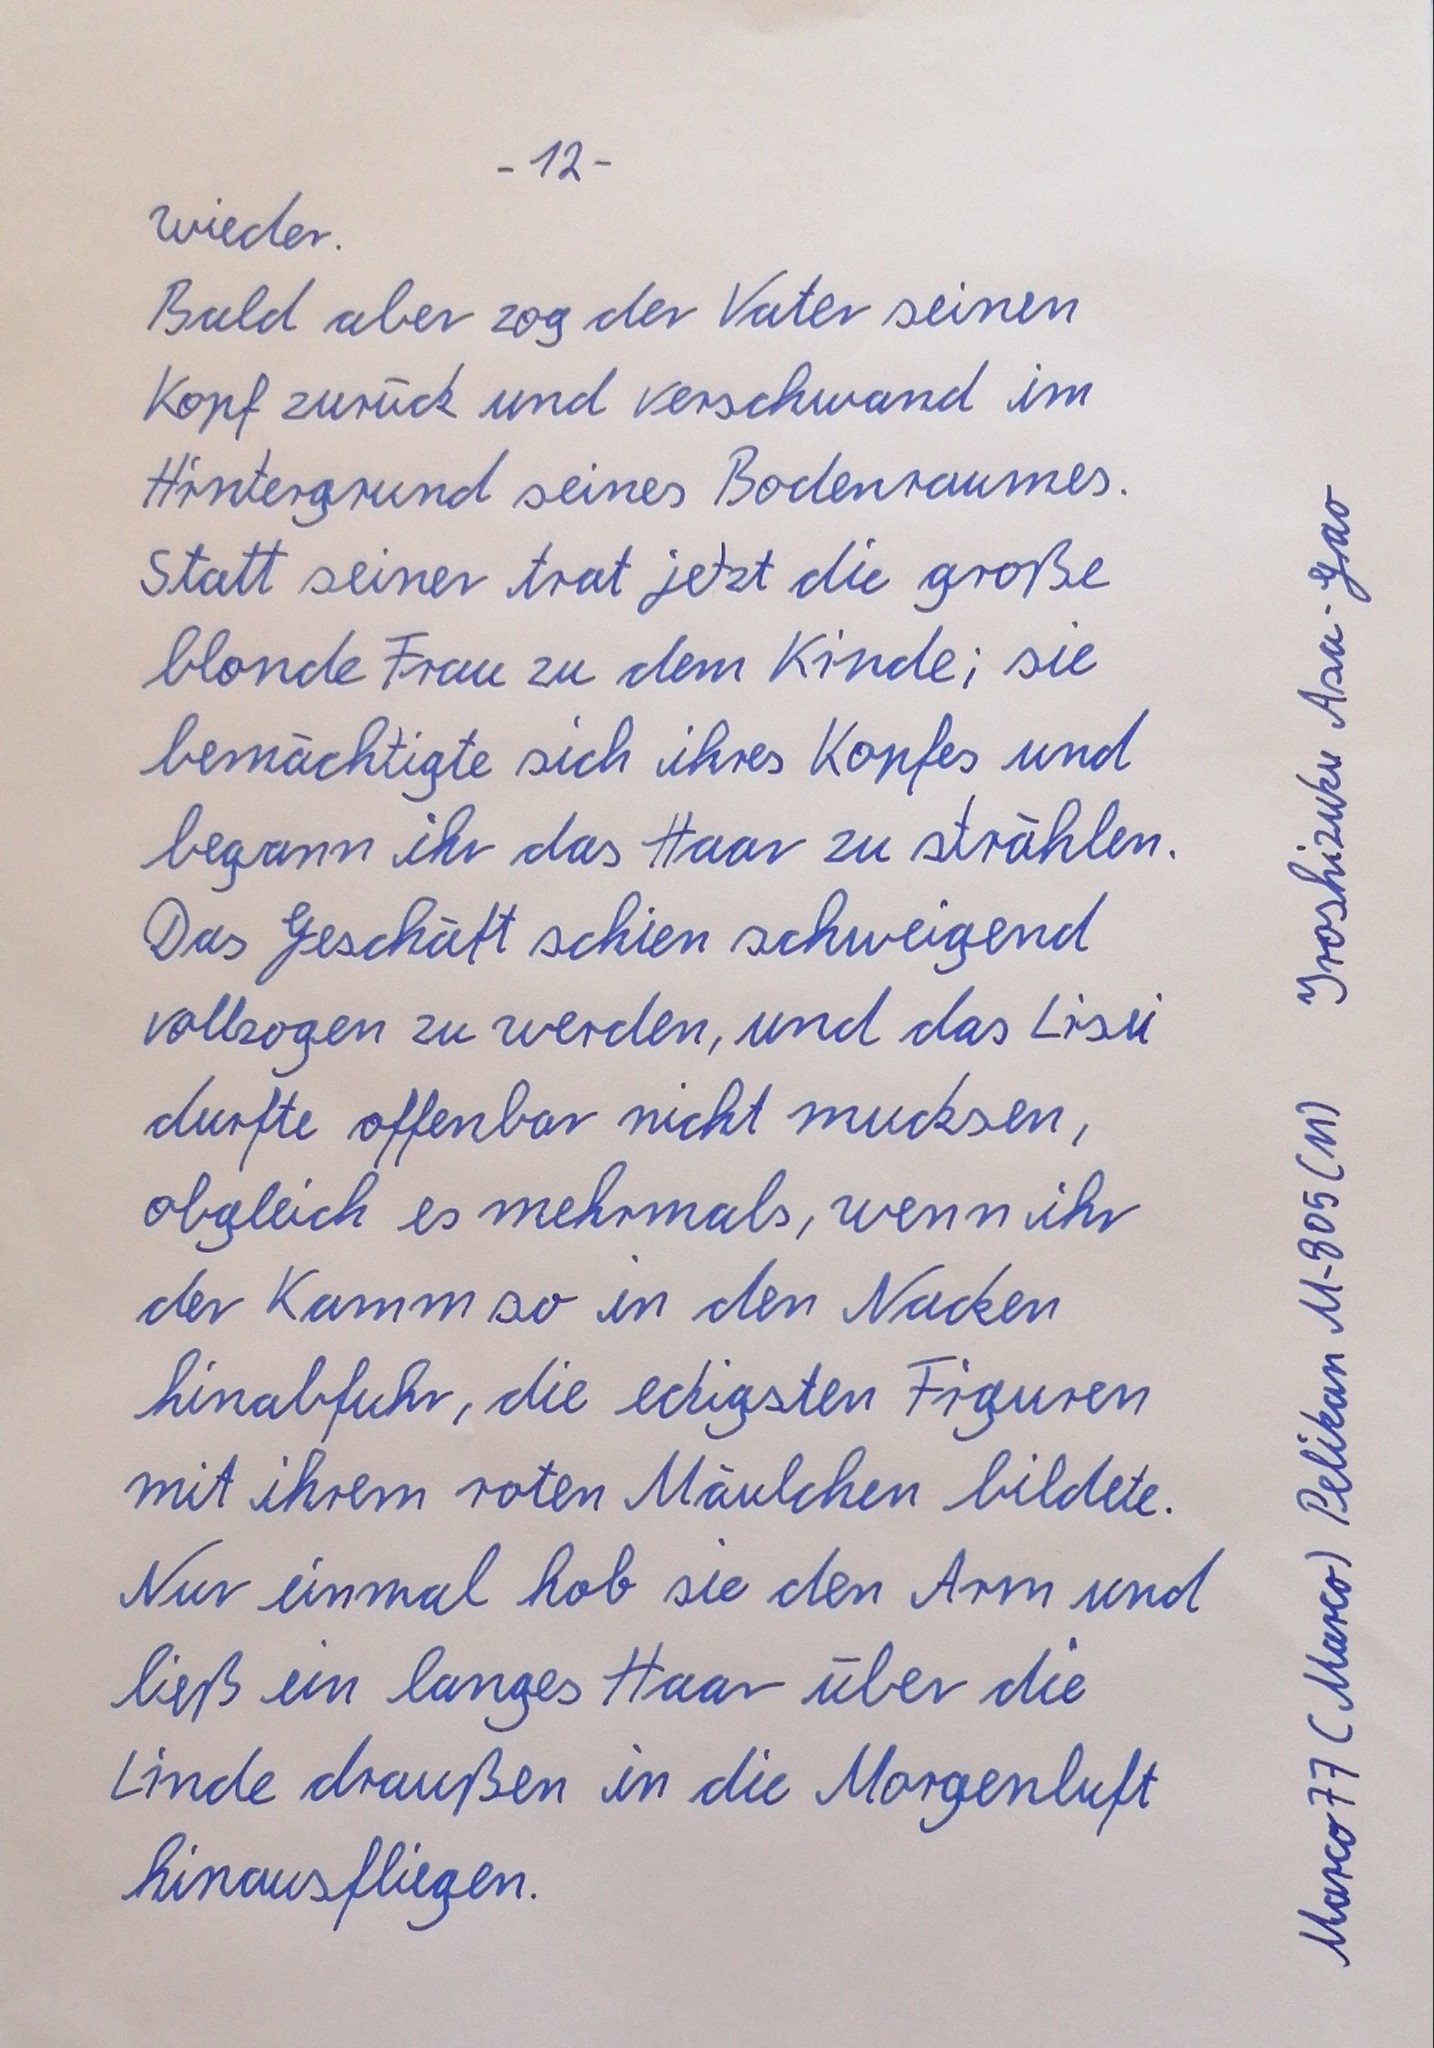 - 12 -
wieder.
Bald aber zog der Vater seinen
Kopf zurück und verschwand im
Hintergrund seines Bodenraumes.
Statt seiner trat jetzt die große
blonde Frau zu dem Kinde; sie
bemächtigte sich ihres Kopfes und
begann ihr das Haar zu strählen.
Das Geschäft schien schweigend
vollzogen zu werden, und das Lisei
durfte offenbar nicht mucksen,
obgleich es mehrmals, wenn ihr
der Kamm so in den Nacken
hinabfuhr, die eckigsten Figuren
mit ihrem roten Mäulchen bildete.
Nur einmal hob sie den Arm und
ließ ein langes Haar über die
Linde draußen in die Morgenluft
hinausfliegen.
Marco77 (Marco) Pelikan M-805 (M) Iroshizuku Asa-Gao